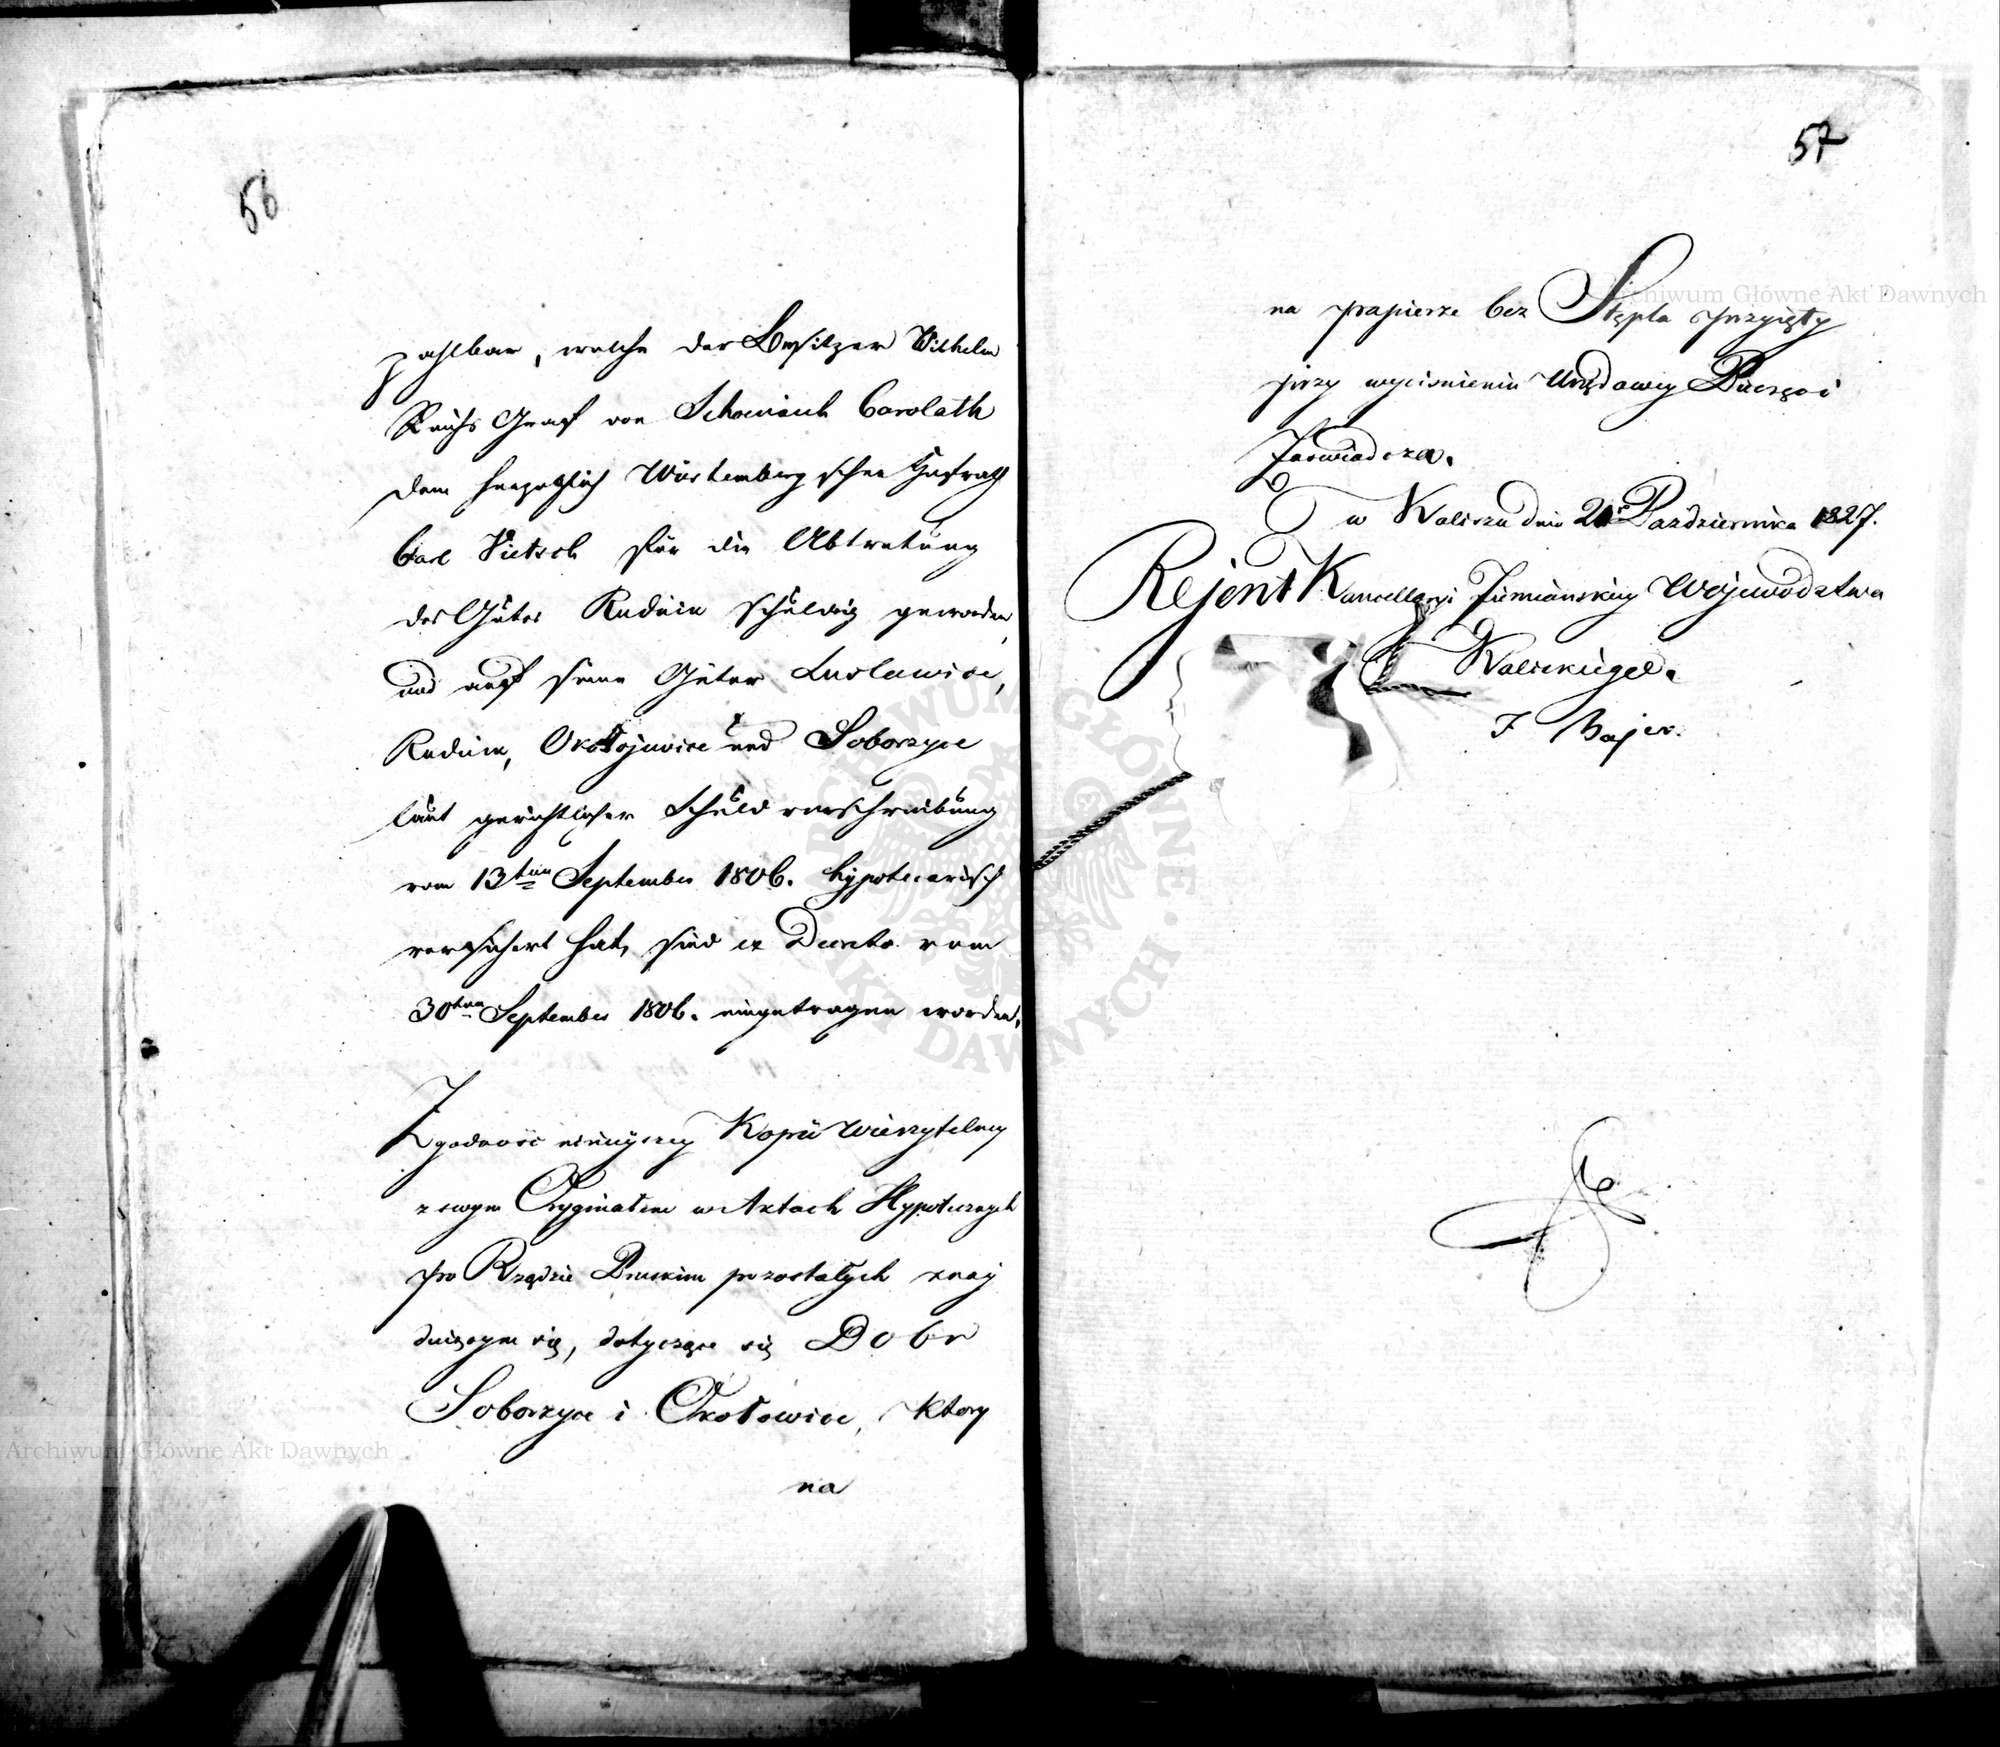 56
zahlbar, welche der Besitzer Wilhelm
Reichs Graf von Schoenaich Carolath
dem herzoglich Würtembergschen Hofrath
Carl Vietsch für die Abtretung
des Gutes Rudnik schuldig geworden,
und auf seine Güter Lusławice,
Okołowice und Soborzyce
laut gerichtlicher Schuldverschreibung
vom 13ten September 1806. hypotecarisch
versichert hat, sind ex Decreto vom
30ten September 1806. eingetragen worden.
Zgodność ninieyszey Kopii Wierzytelney
z swym Oryginałem w Aktach Hypotecznych
po Rządzie Pruskim pozostałych znay
duiącym się, dotyczące się Dobr
Soborzyce i Okołowice, ktory
na
57
na papierze bez Stępla przyięty
przy wycisnieniu Urzędowey Pieczęci
Zaswiadcza.
w Kaliszu dnia Października 1827.
Rejent Kancellaryi Ziemianskiey Woiewodztwa
Kaliskiego.
F Bajer.
Archiwum Główne Akt Dawnych
Archiwum Główne Akt Dawnych
ARCHIWUM GŁÓWNE AKT DAWNYCH